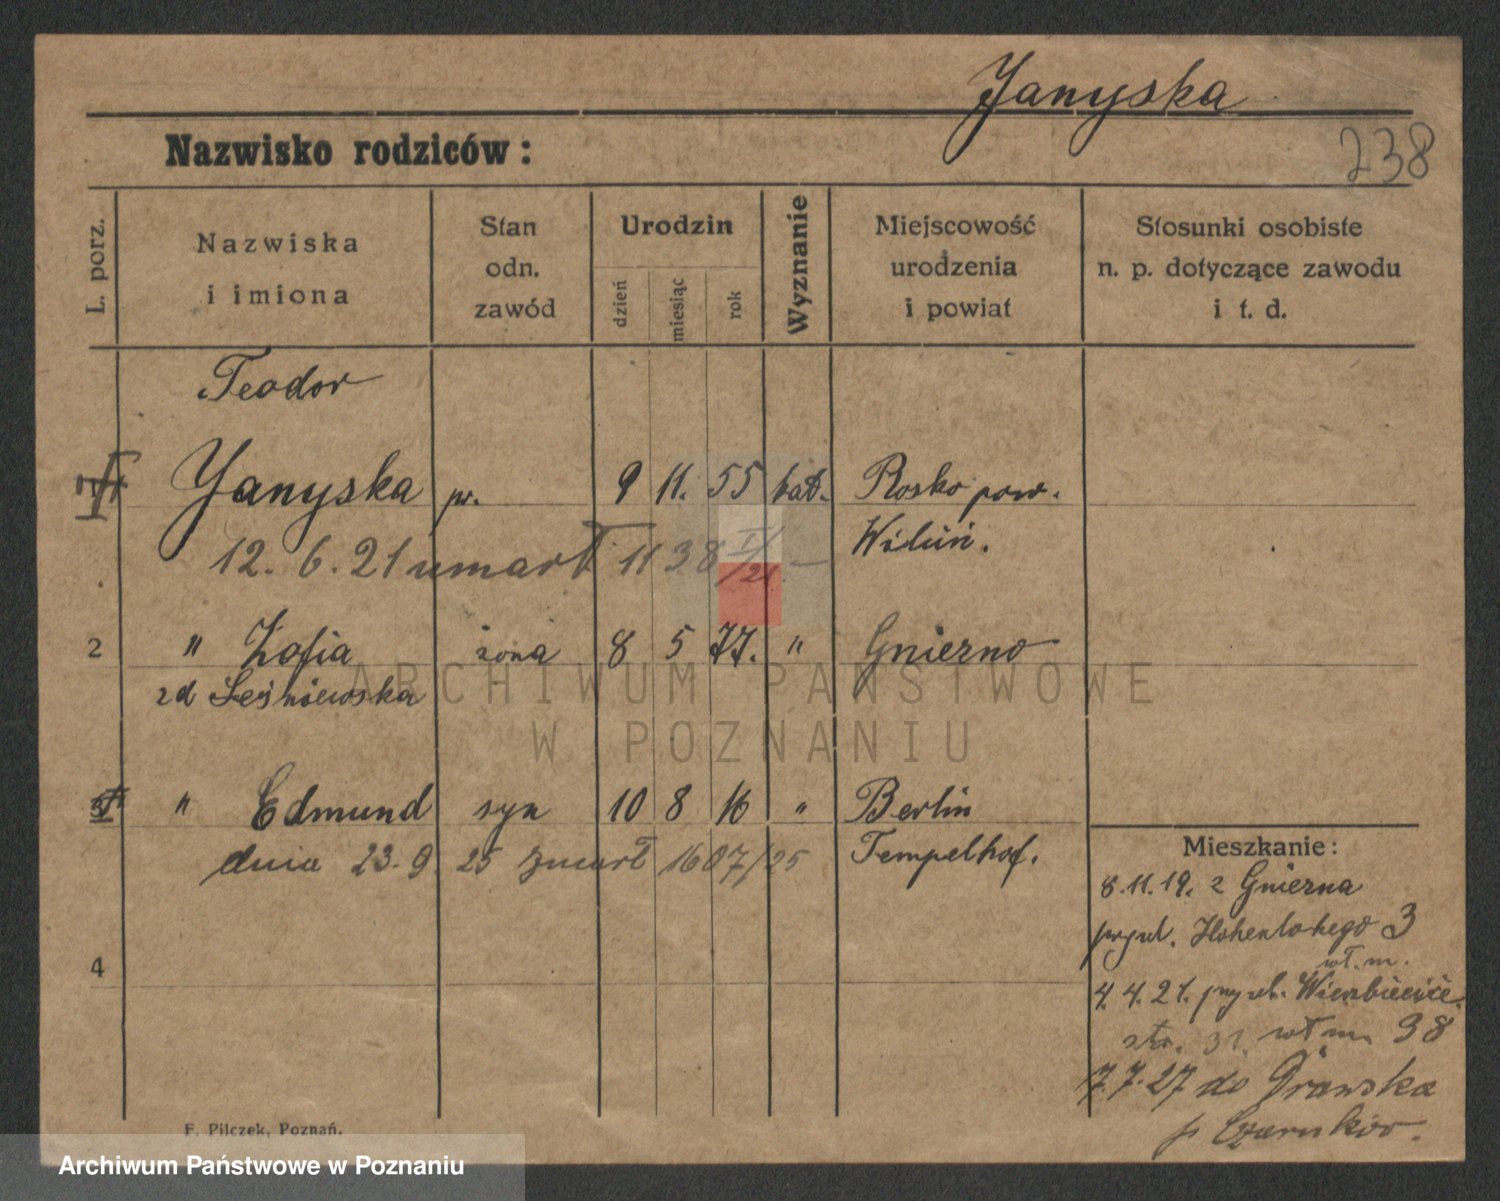 Yanyska
Nazwisko rodziców:
238
L. porz.
Nazwiska
i imiona
Stan
odn.
zawód
Urodzin
dzień
miesiąc
rok
Wyznanie
Miejscowość
urodzenia
i powiat
Stosunki osobiste
n. p. dotyczące zawodu
i t. d.
Teodor
Yanyska pr. 9 11. 55 kat. Rosko pow.
Wieluń.
12. 6. 21 umarł 1138 /21.
2 " Zofia żona 8 5 77. " Gniezno
zd Leśniewska
3 " Edmund syn 10 8 16 " Berlin
Tempelhof.
dnia 23. 9. 25 zmarł 1607/25
4
Mieszkanie:
8. 11. 19. z Gniezna
Hohenlohego 3
wł. m.
4. 4. 21. Wierzbięcice
wł m 38
7. 7. 27 do
p Czarnków.
F. Pilczek, Poznań.
ARCHIWUM PAŃSTWOWE
W POZNANIU
Archiwum Państwowe w Poznaniu